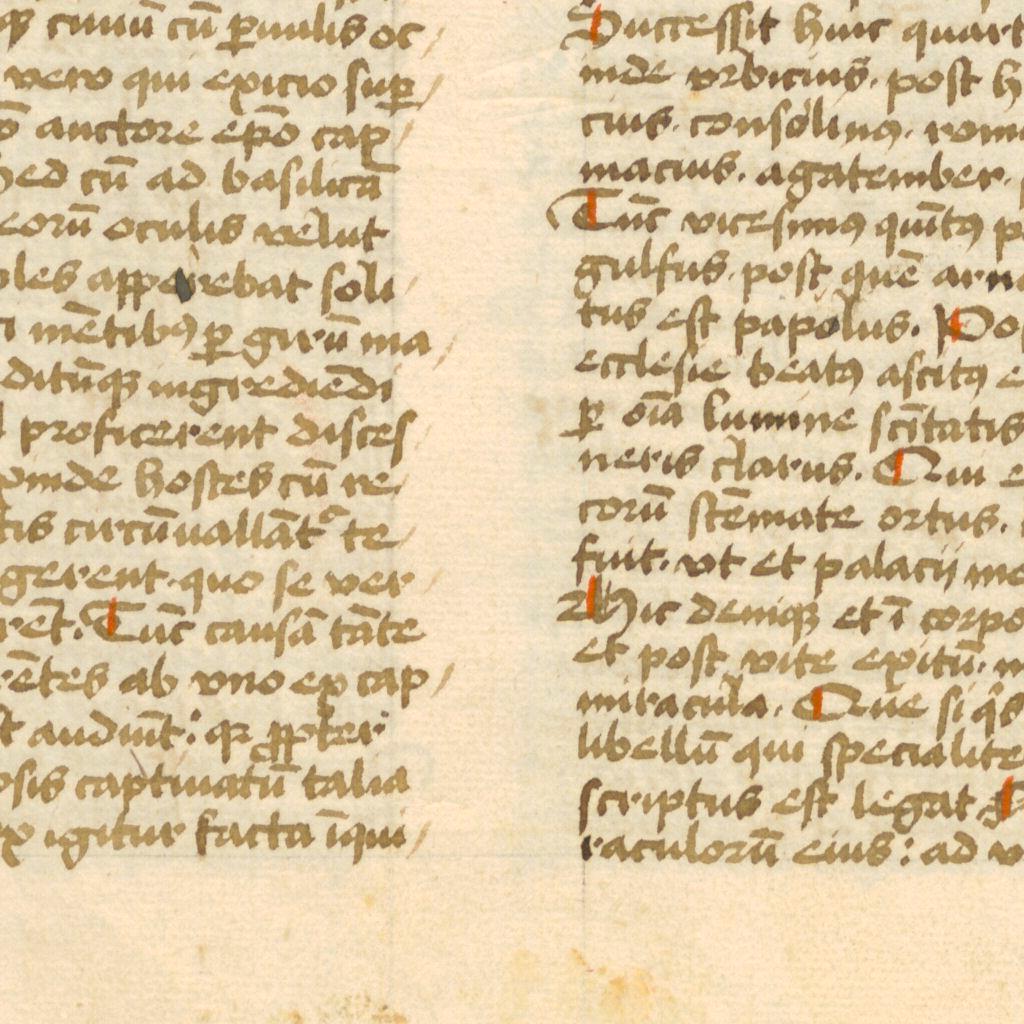 ciuiū cū ꝑuulis oc
vero qui exicio suꝑ
auctore epō cap
cū ad basilicā
eorū oculis velut
apparebat soli
mētibꝰ ꝑ girū ma
ditūqꝫ ingrediēdi
proficerent disces
hostes cū re
circūuallāt te
gerent quo se ver
Tūc causā tāte
ab vno ex cap
audiūt: qꝛ ꝓpter
captiuatū talia
igitur facta īqui
Successit huic quart
inde vrbicius. post h
cius. consolinꝰ. rom
macius. agatember.
Tūc vicesimꝰ quītꝰ p
gulfus. post quē arn
tus est papolus. Po
ecclesie beatꝰ ascitꝰ e
ꝑ oīa lumine scītatis
neris clarus. Qui e
corū stēmate ortus.
fuit. vt et palacij me
Hic deniqꝫ et ī corpo
et post vite exitū. m
miracula. Que si qͥs
libellū qui specialite
scriptus est legat.
raculorū eius: ad v